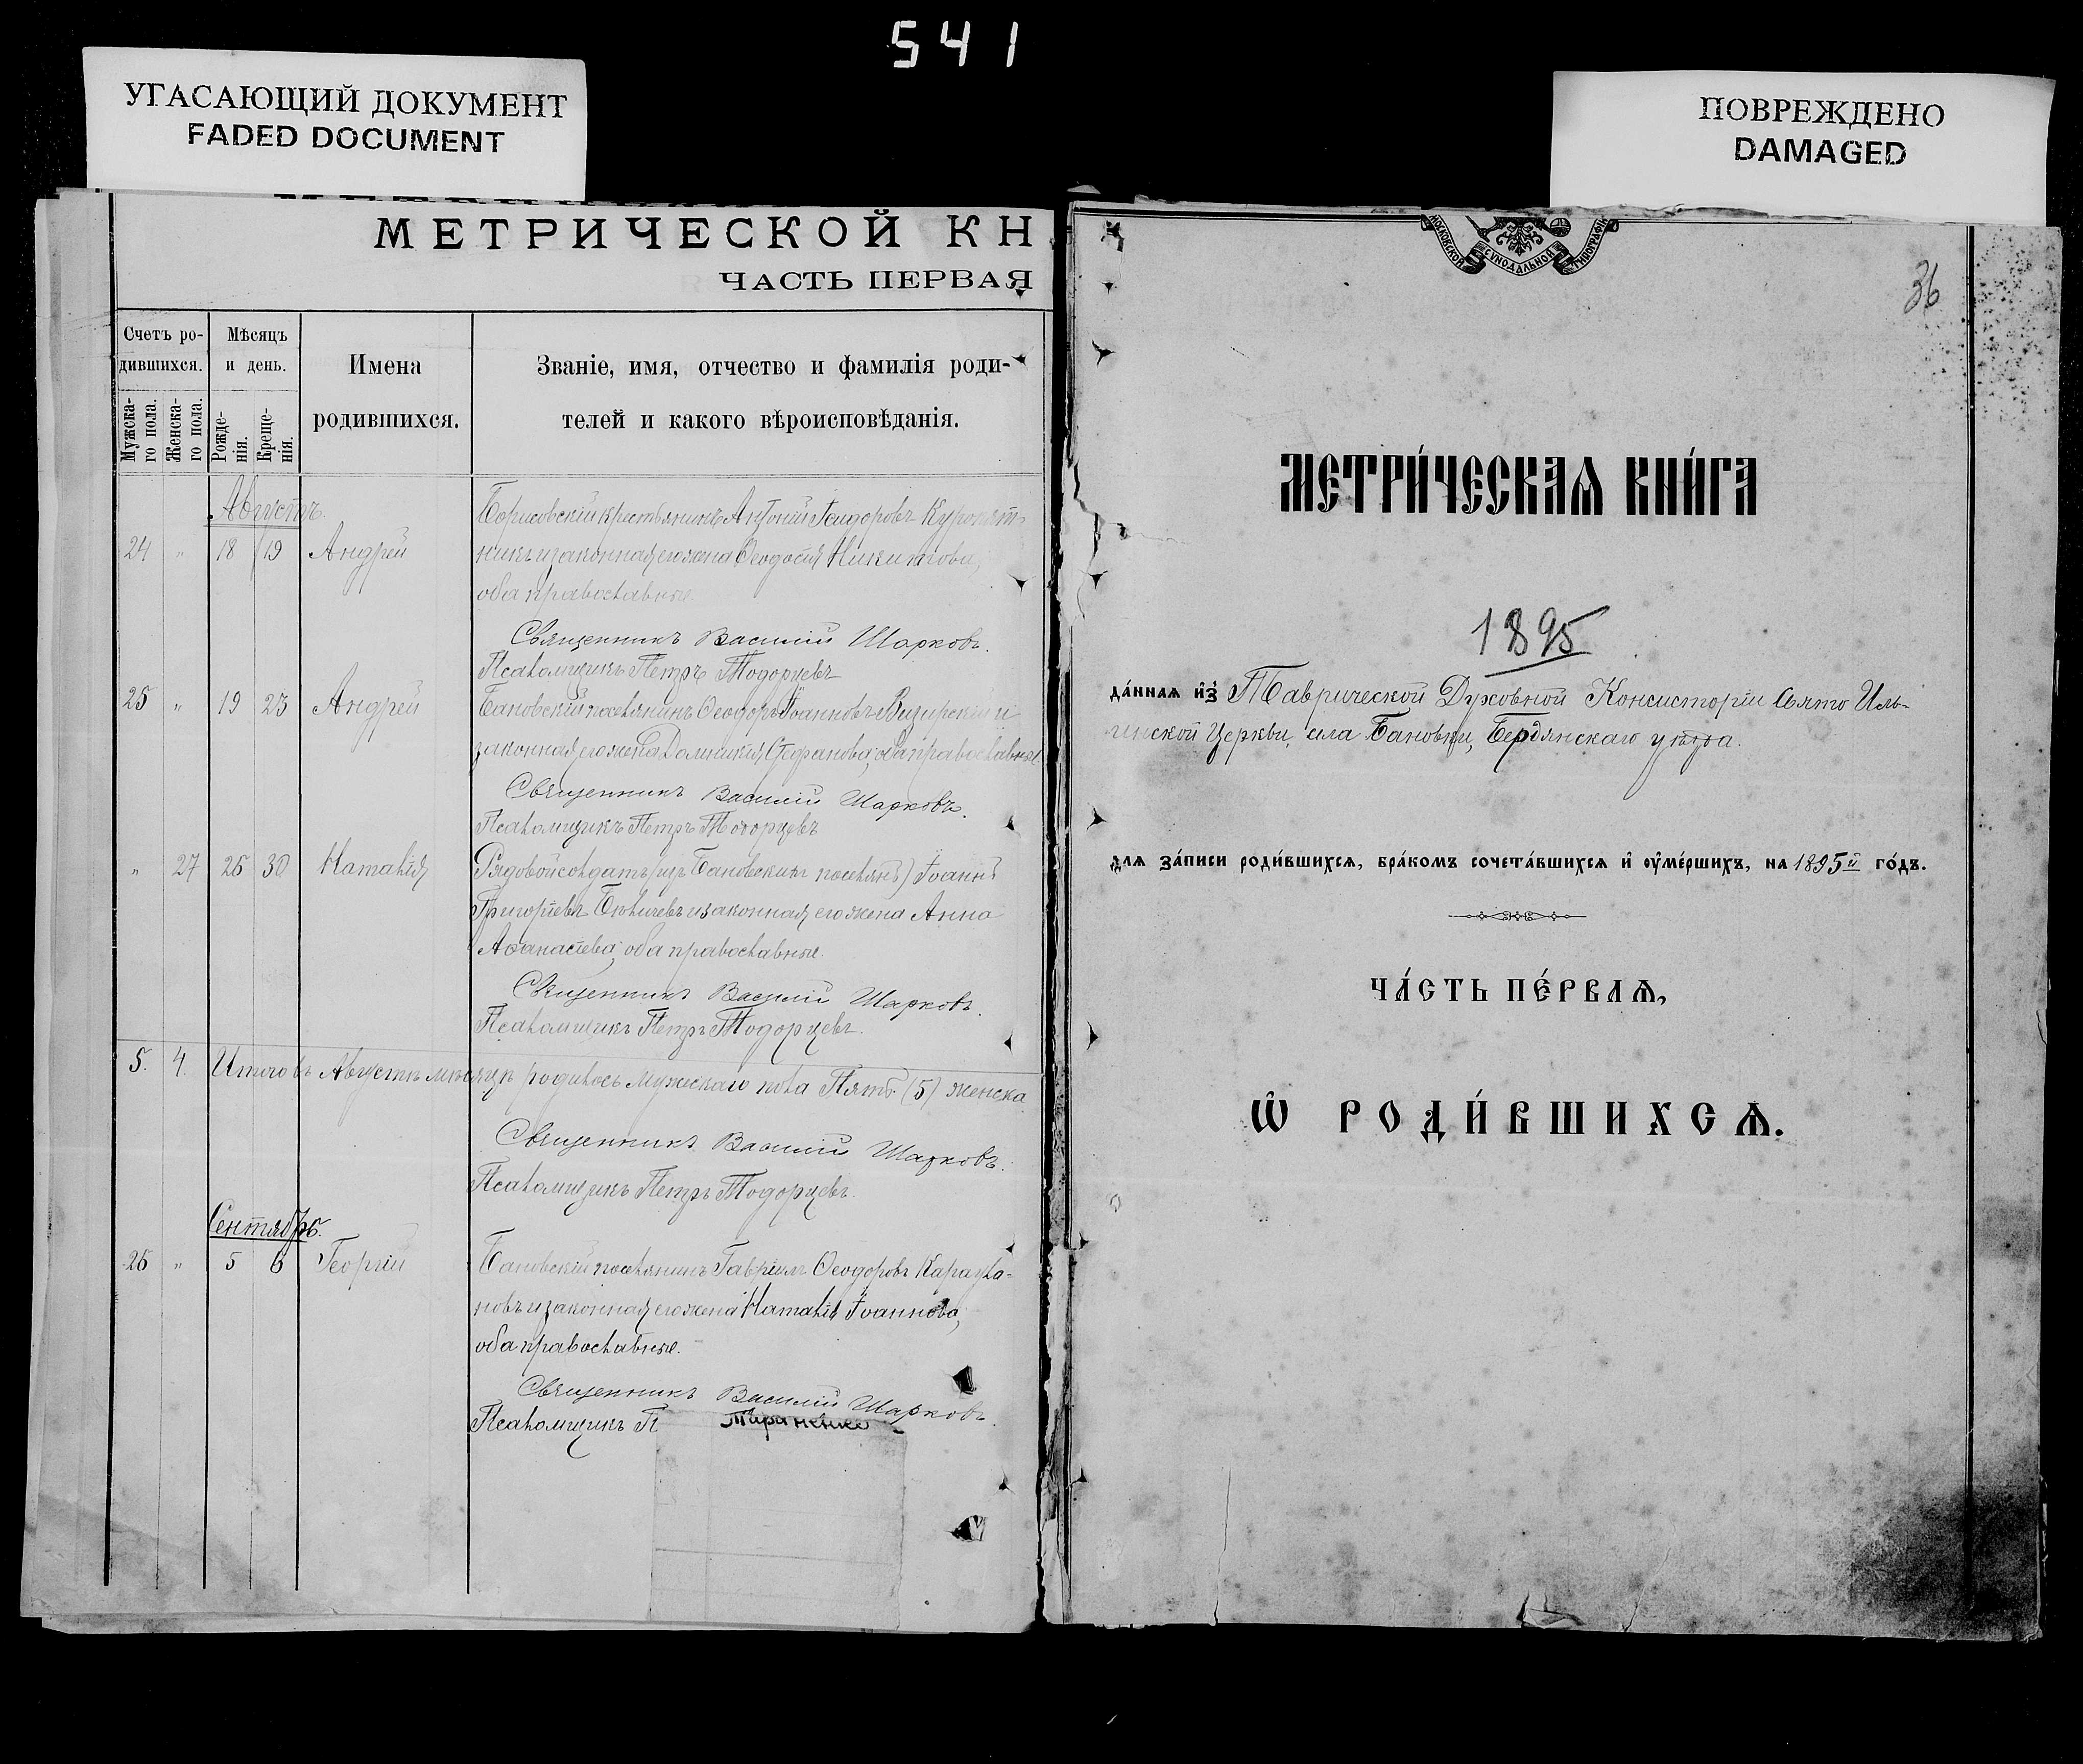 541
УГАСАЮЩИЙ ДОКУМЕНТ
FADED DOCUMENT
ПОВРЕЖДЕНО
DAMAGED
МЕТРИЧЕСКОЙ КН
ЧАСТЬ ПЕРВАЯ
Счетъ ро-
дившихся.
Мужска-
го пола.
Женска-
го пола.
Мѣсяцъ
и день.
Рожде-
нія.
Креще-
нія.
Имена
родившихся.
Званіе, имя, отчество и фамилія роди-
телей и какого вѣроисповѣданія.
Августъ.
Борисовскій крестьянинъ Антоній Исидоровъ Куропят-
24 „ 18 19 Андрей никъ и законная его жена Ѳеодосія Никитова,
оба православные.
Священникъ Василій Шарковъ.
Псаломщикъ Петръ Тодорцевъ
25 „ 19 23 Андрей Бановскій поселянинъ Ѳеодоръ Іоанновъ и
законная его жена Домникія Стефанова, оба православные.
Священникъ Василій Шарковъ.
Псаломщикъ Петръ Тодорцевъ
„ 27 26 30 Наталія Рядовой солдатъ (изъ Бановскихъ поселянъ) Іоаннъ
Григоріевъ и законная его жена Анна
Аѳанасіева, оба православные.
Священникъ Василій Шарковъ.
Псаломщикъ Петръ Тодорцевъ.
5. 4. Итого въ Августѣ мѣсяцѣ родилось мужскаго пола Пять (5) женска
Священникъ Василій Шарковъ.
Псаломщикъ Петръ Тодорцевъ.
Сентябрь.
26 „ 5 6 Георгій Бановскій поселянинъ Гавріилъ Ѳеодоровъ Караула-
новъ и законная его жена Наталія Іоаннова,
оба православные.
Священникъ Василій Шарковъ.
Псаломщикъ П
МОСКОВСКОЙ СѴНОДАЛЬНОЙ ТИПОГРАФІИ
36
МЕТРИ́ЧЕСКАѦ КНИ́ГА
1895
да́нная и҆з̾ Таврической Духовной Консисторіи Свято Иль-
инской Церкви, села Бановки, Бердянскаго уѣзда.
для за́писи роди́вшихся, бра́комъ сочета́вшихся и҆ ᲂу҆ме́ршихъ, на 1895й го́дъ.
ЧА́СТЬ ПЕ́РВАѦ,
Ѡ҆ РОДИ́ВШИХСѦ.